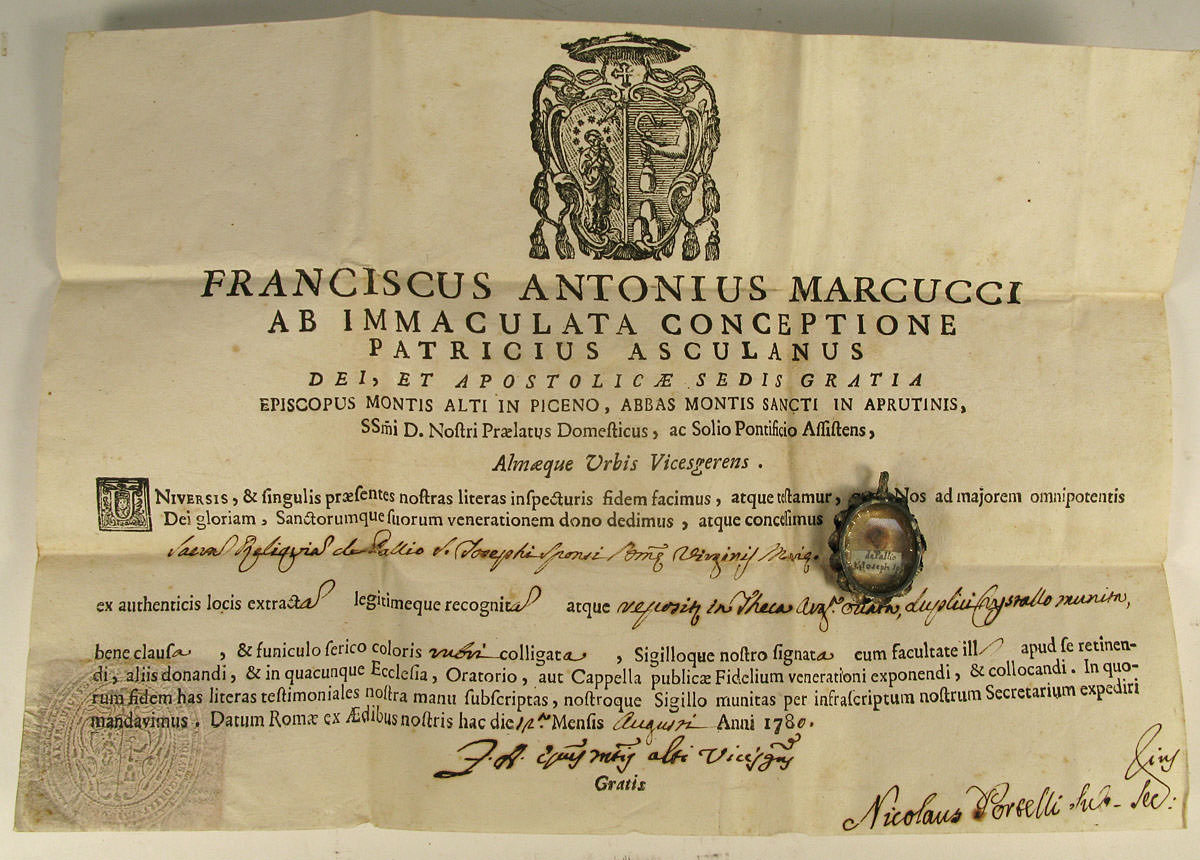 FRANCISCUS ANTONIUS MARCUCCI
AB IMMACULATA CONCEPTIONE
PATRICIUS ASCULANUS
DEI, ET APOSTOLICÆ SEDIS GRATIA
EPISCOPUS MONTIS ALTI IN PICENO, ABBAS MONTIS SANCTI IN APRUTINIS,
SSm̃i D. Noſtri Prælatus Domeſticus, ac Solio Pontificio Aſſiſtens,
Almæque Urbis Vicesgerens.
UNIVERSIS, & ſingulis præſentes noſtras literas inſpecturis fidem facimus, atque teſtamur, Nos ad majorem omnipotentis
Dei gloriam, Sanctorumque ſuorum venerationem dono dedimus, atque conceſſimus
Sacra Reliquia de Pallio S. Josephi Sponsi Virginis
de Pallio
S. Joseph Sp
ex authenticis locis extracta legitimeque recognita atque reposit in Theca Arg. ovata, duplici Crystallo munita,
bene clauſa, & funiculo ſerico coloris rubri colligata, Sigilloque noſtro ſignata cum facultate ill apud ſe retinen-
di, aliis donandi, & in quacunque Eccleſia, Oratorio, aut Cappella publicæ Fidelium venerationi exponendi, & collocandi. In quo-
rum fidem has literas teſtimoniales noſtra manu ſubſcriptas, noſtroque Sigillo munitas per infraſcriptum noſtrum Secretarium expediri
mandavimus. Datum Romæ ex Ædibus noſtris hac die Menſis Augusti Anni 1780.
F. A. alti Vicesg
Gratis
Nicolaus Sec: